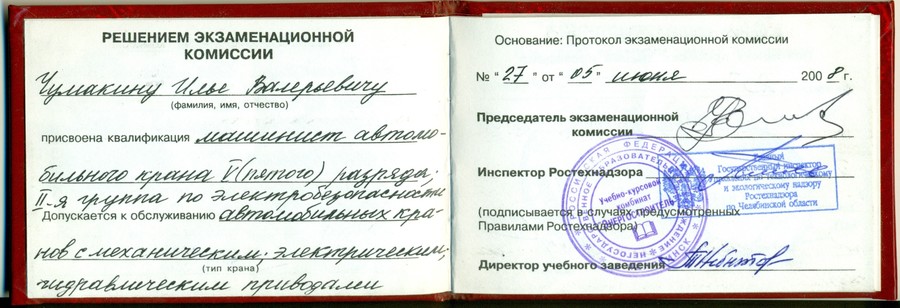 РЕШЕНИЕМ ЭКЗАМЕНАЦИОННОЙ
КОМИССИИ
Чумакину Илье Валерьевичу
(фамилия, имя, отчество)
присвоена квалификация машинист автомо-
бильного крана V (пятого) разряда;
II-я группа по электробезопасности
Допускается к обслуживанию автомобильных кра-
нов с механическим; электрическим;
(тип крана)
гидравлическим приводами
Основание: Протокол экзаменационной комиссии
№ "27" от "05" июня 2008 г.
Председатель экзаменационной
комиссии
Инспектор Ростехнадзора
Государственный инспектор
по технологическому
и экологическому надзору
Ростехнадзора
по Челябинской области
(подписывается в случаях предусмотренных
Правилами Ростехнадзора)
Директор учебного заведения
РОССИЙСКАЯ ФЕДЕРАЦИЯ
Учебно-курсовой
комбинат
"ЭНЕРГОСТРОИТЕЛЬ"